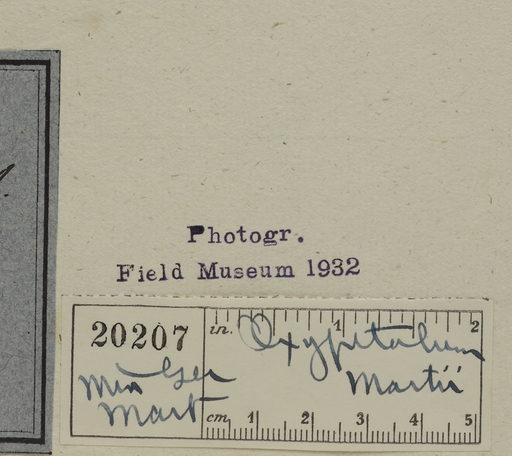 Photogr.
Field Museum 1932
20207
in. 1 2
Oxypetalum
Martii
Mart
cm 1 2 3 4 5